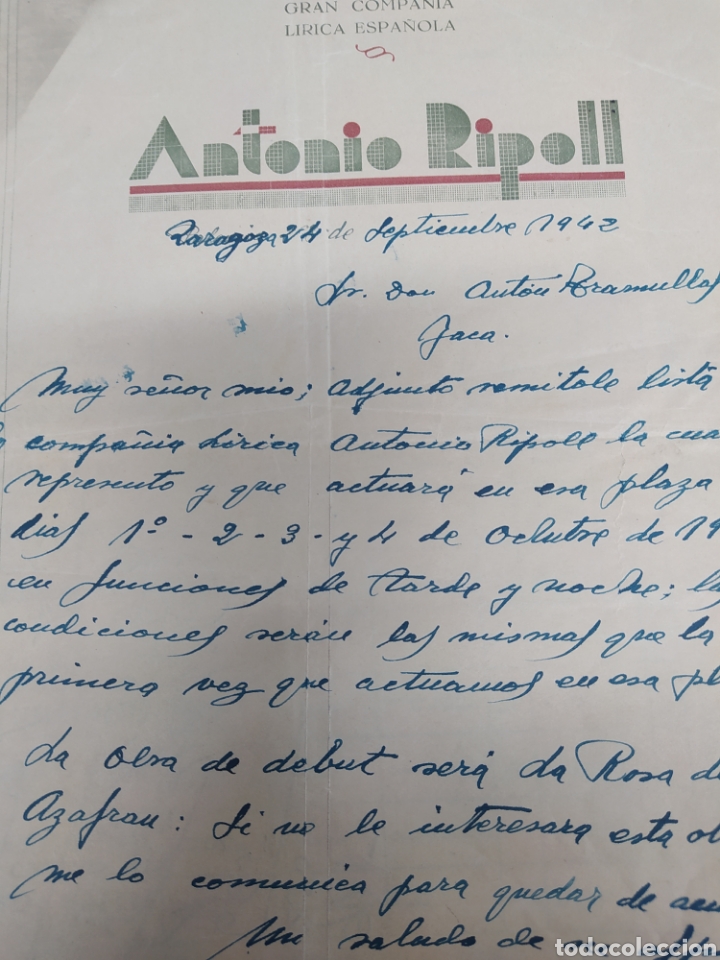 GRAN COMPAÑIA
LIRICA ESPAÑOLA
Antonio Ripoll
Zaragoza 24 de Septiembre 1942
Sr. Don Antón Tramullas
Jaca.
Muy señor mio; adjunto remitole lista
compañia Lirica Antonio Ripoll la cua
represento y que actuará en esa plaza
dias 1º - 2 - 3 - y 4 de Octubre de 19
en funciones de tarde y noche; la
condiciones serán las mismas que la
primera vez que actuamos en esa pl
La obra de debut será La Rosa de
Azafran: Si no le interesara esta ob
me lo comunica para quedar de acu
Un saludo de
todocoleccion